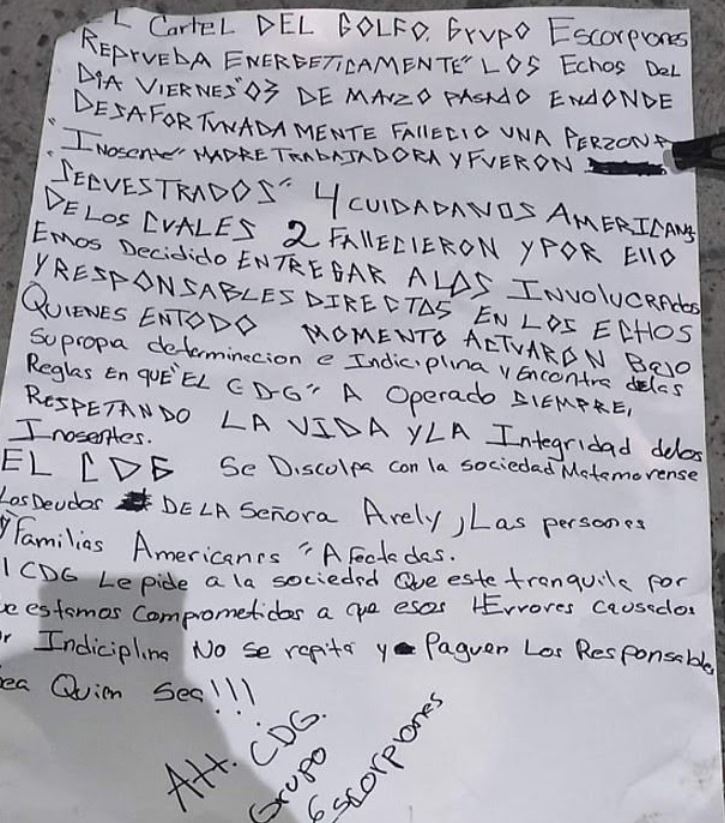 EL CArteL DEL GOLFO, GrvpO Escorpiones
REPrVEBA ENERGETICAMENTE" LOS Echos DeL
DIA VIERNES" 03 DE MArZO PASADO ENdONDE
DESAFORTWNADAMENTE FAllECIO UNA PERZONA
" INosente" MADRE TRABAJADORA Y FVERON
SECVESTRADOS" 4 CUIDADANOS AMERICANS
DE Los CVALES 2 FAllECIERON Y POR EllO
Emos Decidido ENTREGAR A LOS INvolUCRAdos
Y RESPONSABLES DIRECTOS EN LOS ECHOS
QUIENES ENTODO MOMENTO ACTVARON BAJO
Su propia determinecion e Indiciplina y Encontra delas
Reglas En QUE "EL CDG" A Operado SIEMPRE,
RESPETANDO LA VIDA Y LA Integridad delos
Inosentes.
EL CDG Se Disculpa con la sociedad Matamorense
Los Deudos DE LA Señora Arely, Las persones
y Familias Americanas " Afectadas.
l CDG Le pide a la sociedad Que este tranquila por
e estamos Comprometidos a que esos Errores Causados
r Indiciplina No se repita y Paguen Los Responsables
ea Quien Sea!!!
Att. CDG.
Grupo
Escorpiones